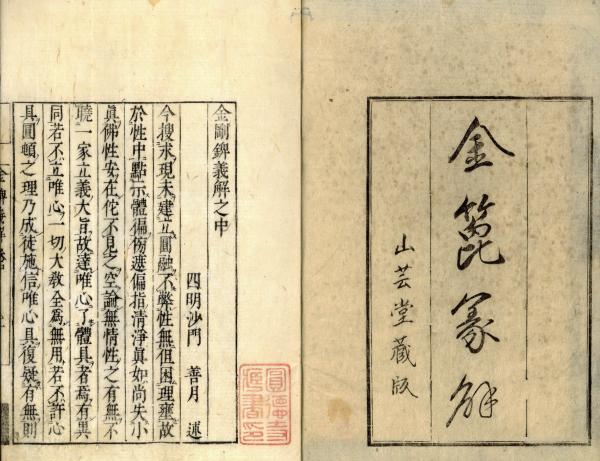 金篦義解
山芸堂藏版
金剛錍義解之中
四明沙門 善月 述
今搜求現未建立圓融不弊性無但困理壅故
於性中點示體徧傍遮偏指清淨眞如尚失小
眞佛性安在佗不見之空論無情性之有無不
曉一家立義大旨故達唯心了體具者焉有異
同若不立唯心一切大敎全爲無用若不許心
具圓頓之理乃成徒施信唯心具復疑有無則